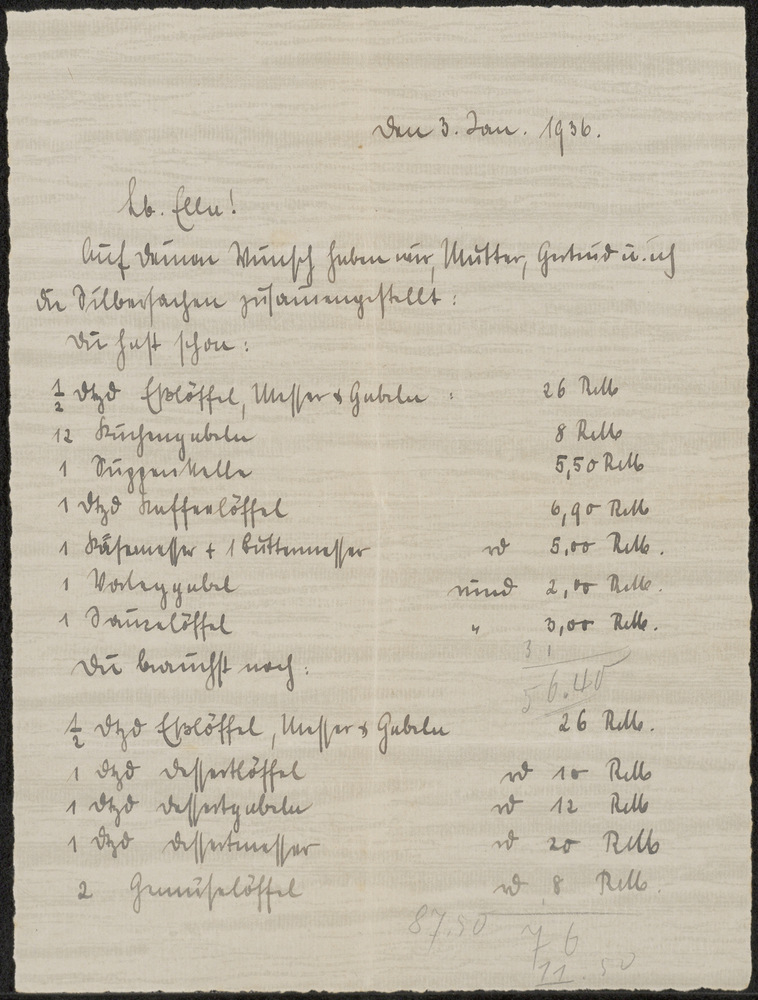 Den 3. Jan. 1936.
Lb. Elln!
Auf Deinen Wunsch haben wir, Mutter, Gertrud u. ich
die Silbersachen zusammengestellt:
Du hast schon:
½ Dtzd Eßlöffel, Messer & Gabeln : 26 RM
12 Kuchengabeln 8 RM
1 Suppenkelle 5,50 RM
1 Dtzd Kaffeelöffel 6,90 RM
1 Käsemesser + 1 Buttermesser rd 5,00 RM.
1 Vorleggabel rund 2,00 RM.
1 Saucelöffel " 3,00 RM.
31
56.40
Du brauchst noch:
½ Dtzd Eßlöffel, Messer & Gabeln 26 RM.
1 Dtzd Dessertlöffel rd 10 RM
1 Dtzd Dessertgabeln rd 12 RM
1 Dtzd Dessertmesser rd 20 RM
2 Gemüselöffel rd 8 RM.
87.50 76
11.50